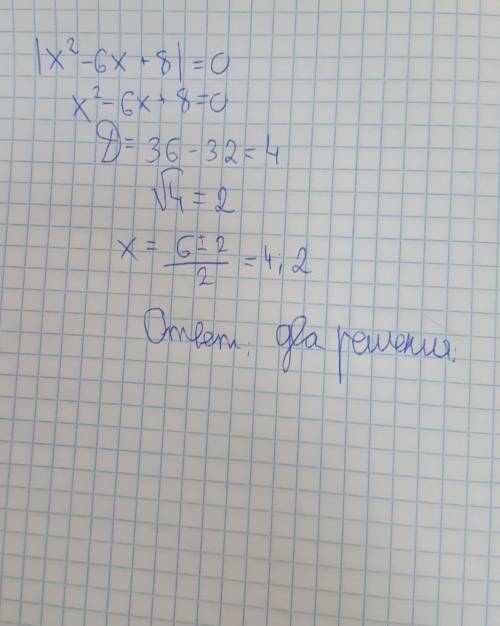 |x²-6x+8|=0
x²-6x+8=0
D=36-32=4
√4=2
x=(6±2)/2=4;2
Ответ: два решения.